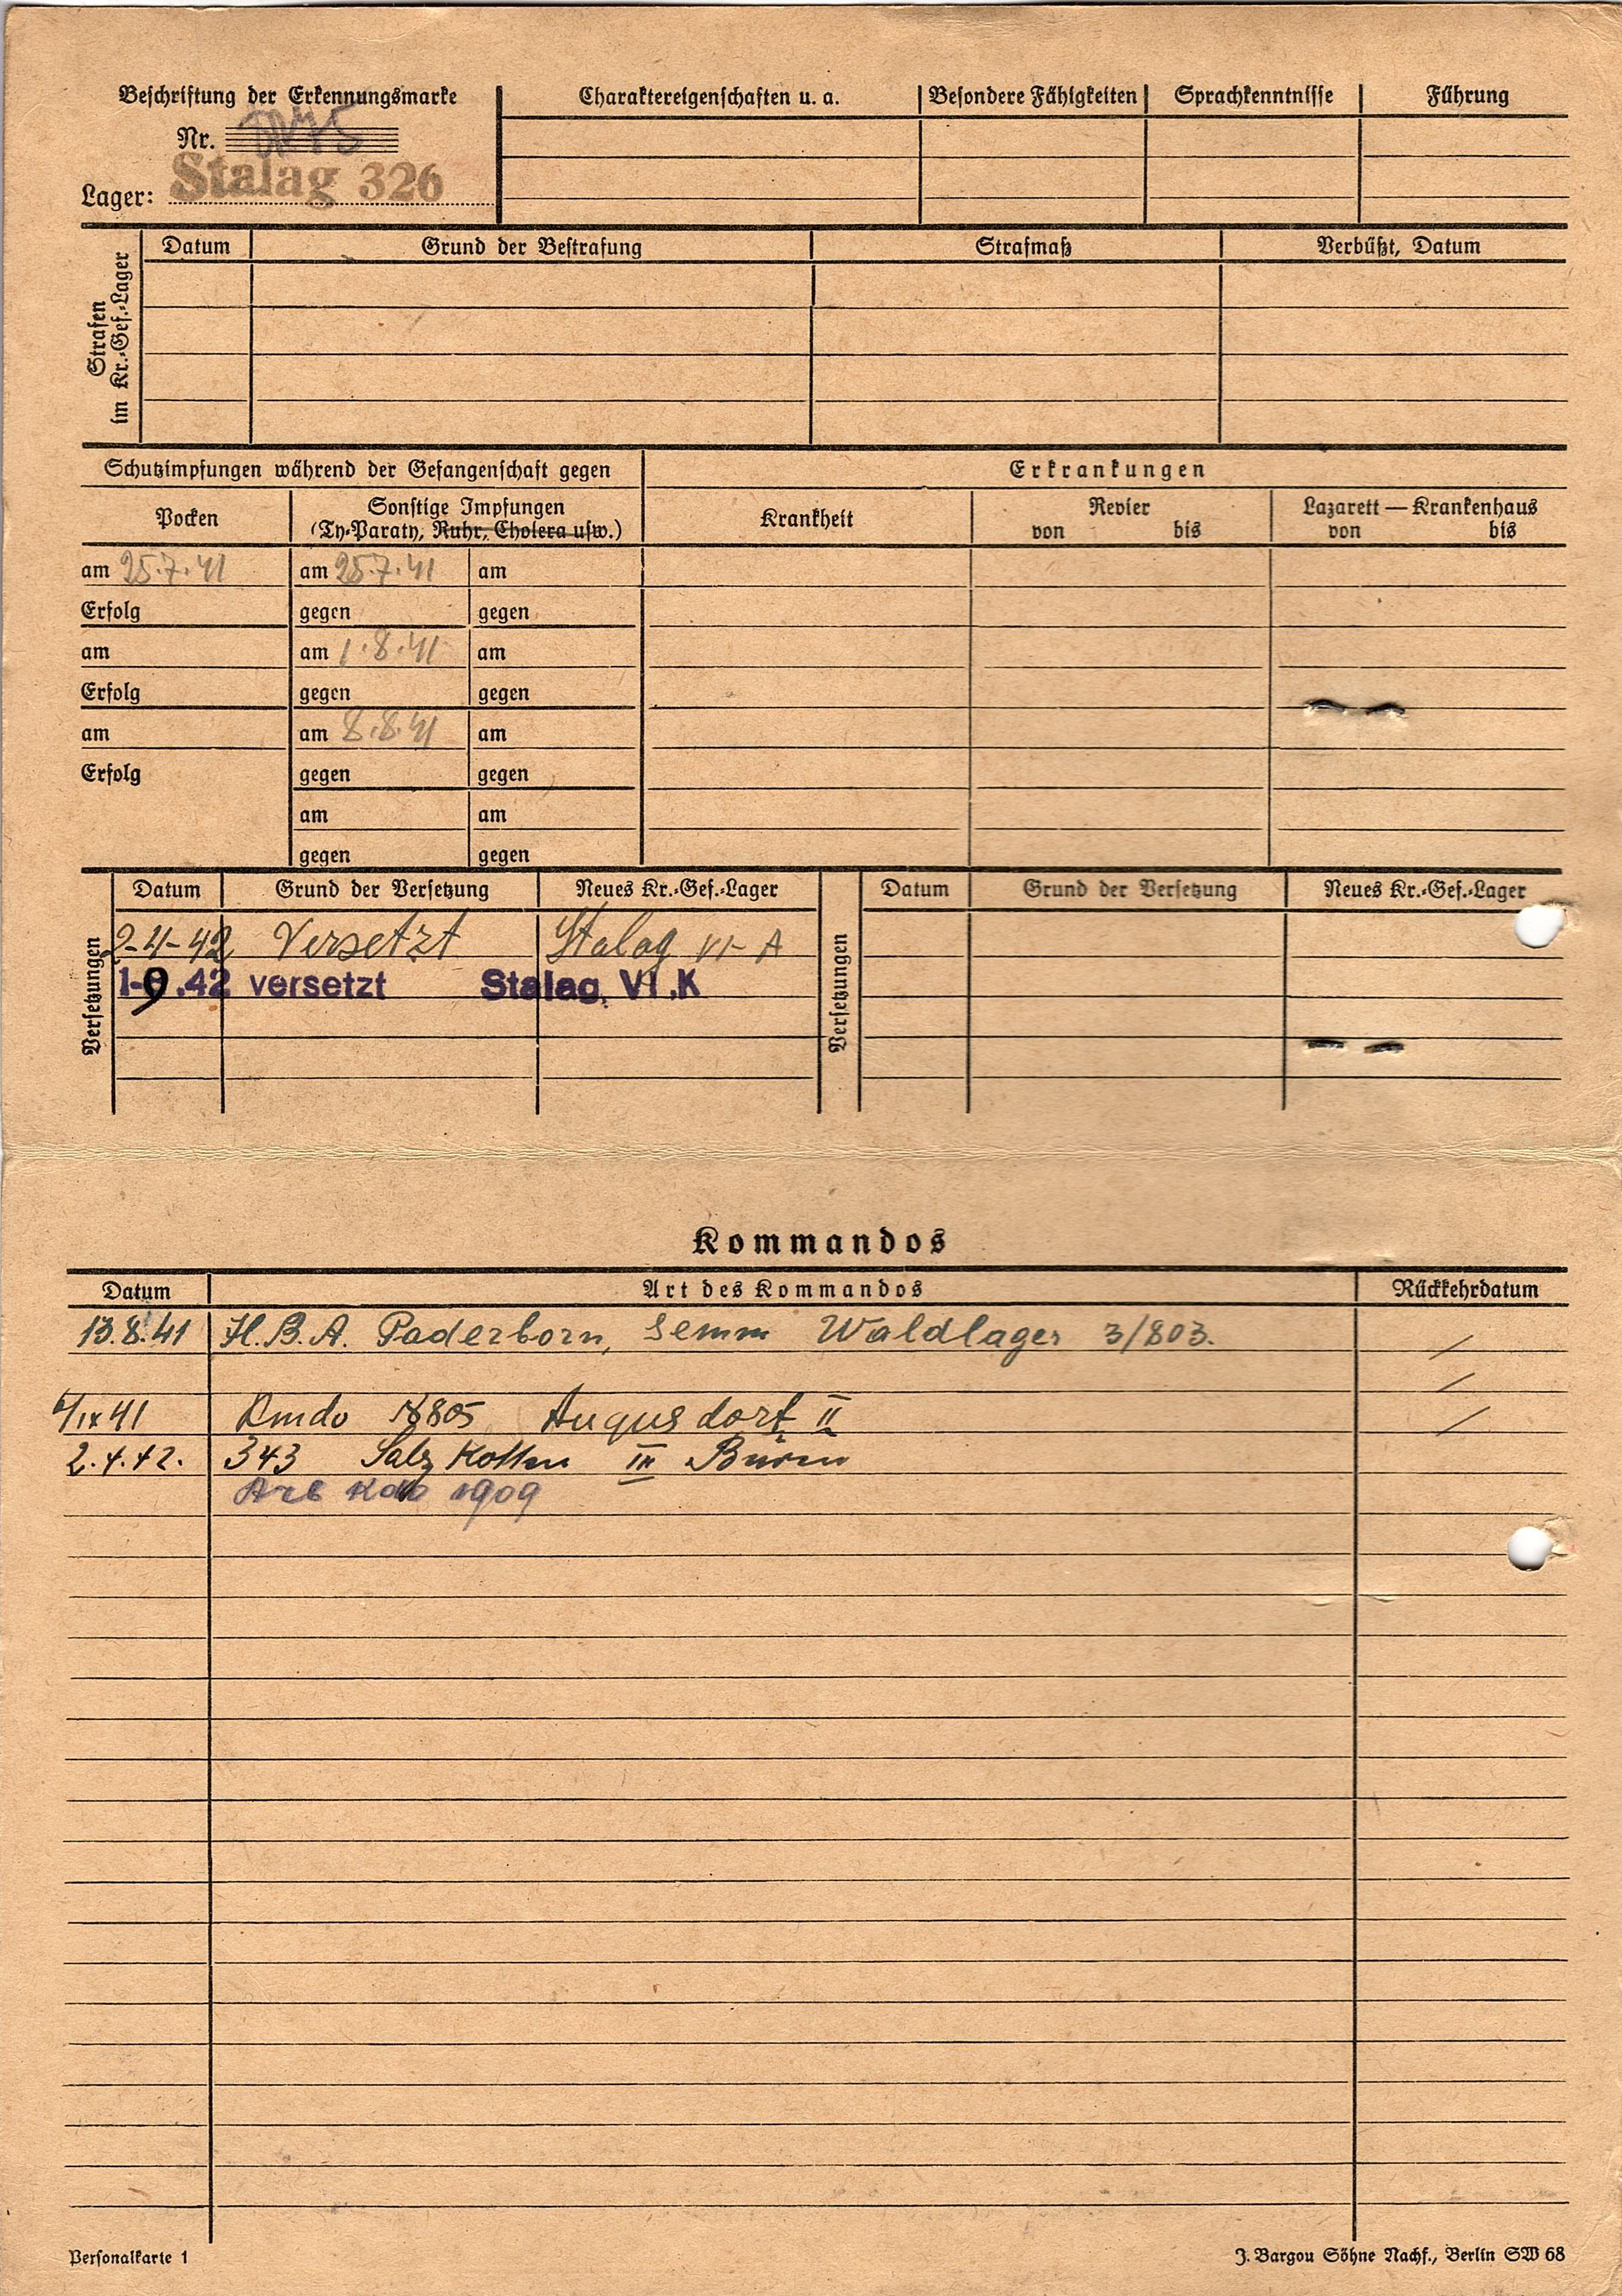 Beschriftung der Erkennungsmarke
Nr.
Lager: Stalag 326
Charaktereigenschaften u. a. Besondere Fähigkeiten Sprachkenntnisse Führung
Strafen im Kr.-Gef.-Lager
Datum Grund der Bestrafung Strafmaß Verbüßt, Datum
Schutzimpfungen während der Gefangenschaft gegen Erkrankungen
Pocken Sonstige Impfungen Krankheit Revier Lazarett — Krankenhaus
(Ty-Paraty, Ruhr, Cholera usw.) von bis von bis
am 25.7.41 am 25.7.41 am
Erfolg gegen gegen
am am 1.8.41 am
Erfolg gegen gegen
am am 8.8.41 am
Erfolg gegen gegen
am am
gegen gegen
Versetzungen Datum Grund der Versetzung Neues Kr.-Gef.-Lager Versetzungen Datum Grund der Versetzung Neues Kr.-Gef.-Lager
2-4-42 Versetzt Stalag VI-A
1-9.42 versetzt Stalag VI.K
Kommandos
Datum Art des Kommandos Rückkehrdatum
13.8.41 H.B.A. Paderborn, Senne Waldlager 3/803.
6/IX 41 Kmdo 805 Augusdorf II
2.4.42. 343 Salzkotten III Büren
Arb Kdo 1909
Personalkarte 1
J. Bargou Söhne Nachf., Berlin SW 68